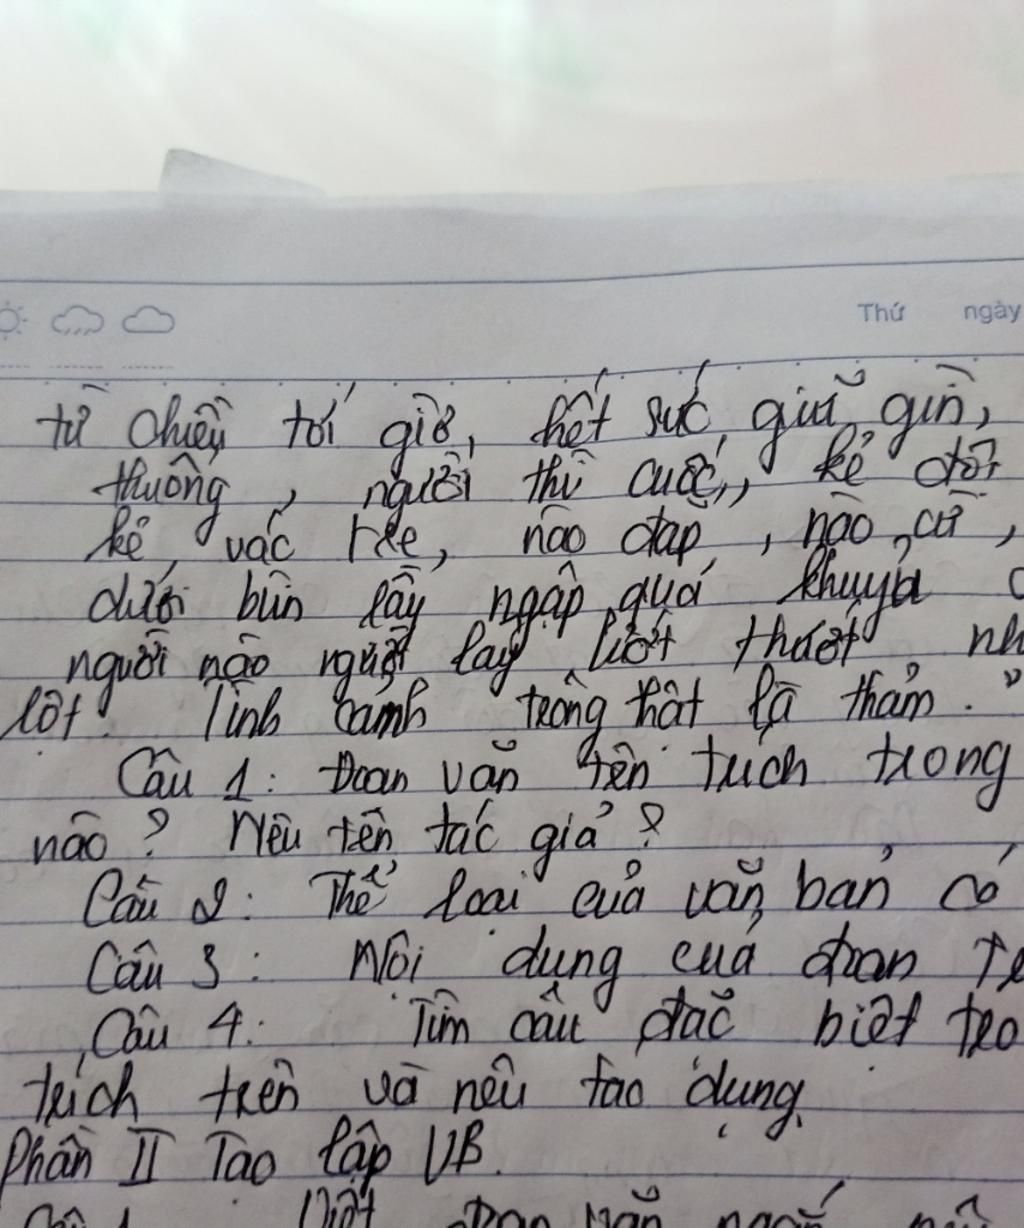 Thứ ngày
từ chiều tới giờ, hết sức giữ gìn,
thuông, người thì cuốc, kẻ đội
kẻ vác tre, nào đắp, nào cừ,
dưới bùn lầy ngập quá khuỷu
người nào người lấy lướt thướt
lột. Tình cảnh trông thật là thảm."
Câu 1: Đoạn văn trên trích trong
nào? Nêu tên tác giả?
Câu 2: Thể loại của văn bản có
Câu 3: Nôi dung của đoạn
Câu 4: Tìm câu đặc biệt
trích trên và nêu tác dụng.
Phần II Tạo lập VB.